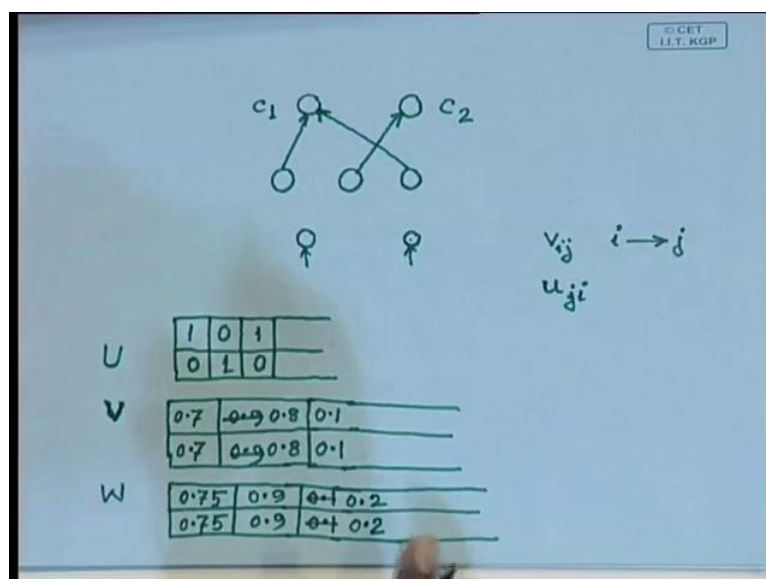 © CET
I.I.T. KGP
C1 C2
Vij i → j
uji
U
1 0 1
0 1 0
V
0.7 0.9 0.8 0.1
0.7 0.9 0.8 0.1
W
0.75 0.9 0.1 0.2
0.75 0.9 0.1 0.2